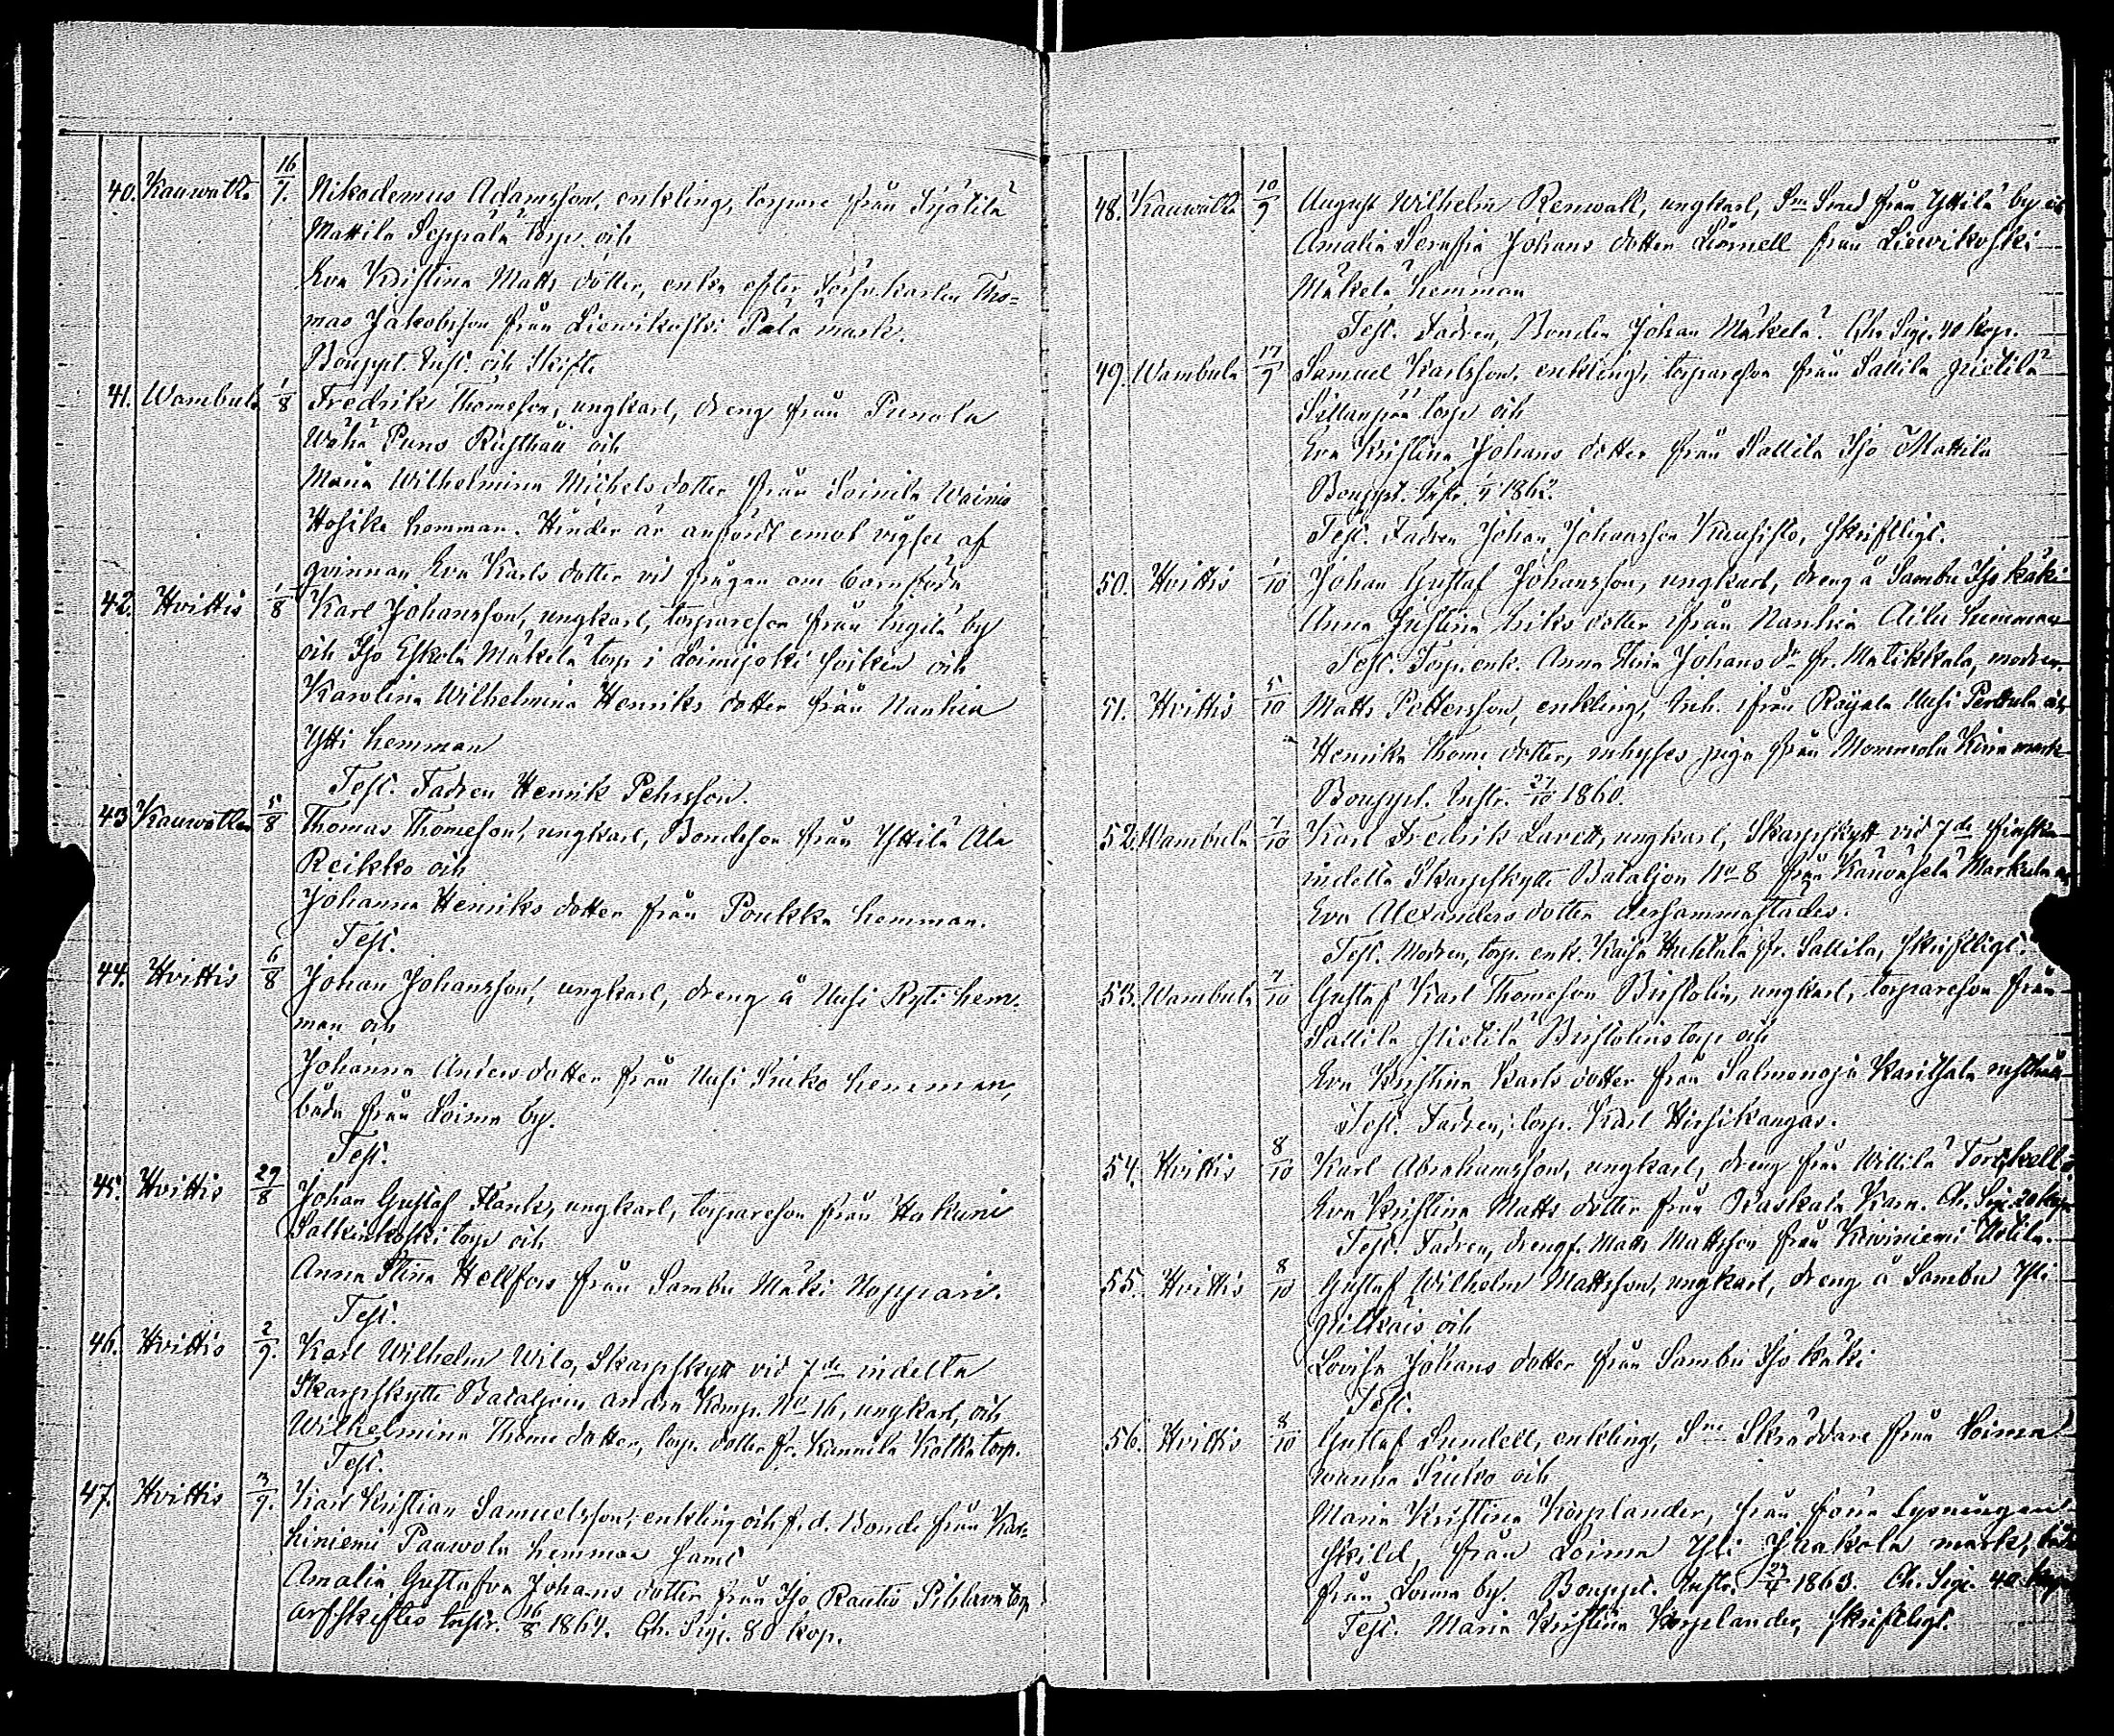 40. Kauwatsa 16/7. Nikodemus Adamsson, enkling, torpare från
Mattila Seppälä torp och
Eva Kristina Matts dotter, enka efter Tho=
mas Jakobsson från Liewikoski Pala mark.
Bouppt. Instr. och Skifte
41. Wambula 1/8 Fredrik Thomesson, ungkarl, dreng från Punola
Wähä Puno Rusthåll och
Maria Wilhelmina Michels dotter från Soinila Wainio
Hosike hemman. Hinder är anfördt emot vigsel af
qvinnan Eva Karls dotter vid frågan om barnföda
42. Hvittis 1/8 Karl Johansson, ungkarl, torpareson från by
och Iso Eskola Mäkelä torp i Loimijoki socken och
Karolina Wilhelmina Henriks dotter från Nanhia
Ytti hemman
Test. Fadren Henrik Pehrsson.
43 Kauwatsa 5/8 Thomas Thomesson, ungkarl, Bondeson från Yttilä Ala
Reikko och
Johanna Henriks dotter från Poukka hemman.
Test.
44. Hvittis 6/8 Johan Johansson, ungkarl, dreng å Uusi Ryti hem-
man och
Johanna Anders dotter från Uusi Sieko hemman,
båda från Loima by.
Test.
45. Hvittis 29/8 Johan Gustaf Flank, ungkarl, torpareson från Hakuni
Salkinkoski torp och
Anna Stina Hellfors från Sambu Mäki Noppari.
Test.
46. Hvittis 2/9. Karl Wilhelm Wilo, Skarpskytt vid 7de indelta
Skarpskytte Bataljon andra Komp. No 16, ungkarl, och
Wilhelmina Thome dotter, torp. dotter fr. Kunnila Kölka torp.
Test.
47. Hvittis 3/9. Karl Kristian Samuelsson, enkling och f.d. Bonde från Kar-
hiniemi Pauwola hemman samt
Amalia Gustafva Johans dotter från Iso Rautio Pihlawa torp
Arfskiftes Instr. 16/8 1864. Ch. Sig. 80 kop.
48. Kauwatsa 10/9 August Wilhelm Renwall, ungkarl, Sne Smed från Yttilä by och
Amalia Serafia Johans dotter Linnell från Liewikoski
Mäkelä hemman
Test. Fadren, Bonden Johan Mäkelä. Ch. Sig. 40 kop.
49. Wambula 17/9 Samuel Karlsson, enkling, torpareson från Sallila Pietilä
Sillanpää torp och
Eva Kristina Johans dotter från Sallila Iso Mattila
Bouppt. Instr. 1862.
Test. Fadren Johan Johansson Kuusisto, skriftligt.
50. Hvittis 1/10 Johan Gustaf Johansson, ungkarl, dreng å Sambu Iso käki
Anna Justina Eriks dotter från Nanhia Aila hemman
Test. Torp. enk. Anna Stina Johans dr fr. Matikkala, modren.
51. Hvittis 5/10 Matts Pettersson, enkling, Inh. från Raijala Uusi Perttula och
Henrika Thome dotter, inhyses piga från Mommola Kiina mark
Bouppt. Instr. 27/10 1860.
52. Wambula 7/10 Karl Fredrik Lavett, ungkarl, Skarpskytt vid 7de finska
indelta Skarpskytte Bataljon No 8 från Kauvasela Markula och
Eva Alexanders dotter dersammastädes.
Test. Modren, torp. enk. Kaisa Huhtala fr. Sallila, skriftligt.
53. Wambula 7/10 Gustaf Karl Thomeson Bristolin, ungkarl, torpareson från
Sallila Pietilä Bristolins torp och
Eva Kristina Karls dotter från Salmenoja Karitsala rusthåll
Test. Fadren, torp. Karl Hirsikangas.
54. Hvittis 8/10 Karl Abrahamsson, ungkarl, dreng från Willilä Torckell o
Eva Kristina Matts dotter från Raskala Kara. Ch. Sig. 20 kop.
Test. Fadren, drengf. Matts Mattsson från Kiviniemi Uotila.
55. Hvittis 8/10 Gustaf Wilhelm Mattsson, ungkarl, dreng å Sambu Yli
och
Lovisa Johans dotter från Sambu Iso käki
Test.
56. Hvittis 8/10 Gustaf Sundell, enkling, Sne Skräddare från Loima
wanha Sieko och
Maria Kristina Korplander, från förra lysningen
skild, från Loima Yli Jaakola mark, båda
från Loima by. Bouppt. Instr. 27/4 1863. Ch. Sig. 40 kop
Test. Maria Kristina Korplander, skriftligt.